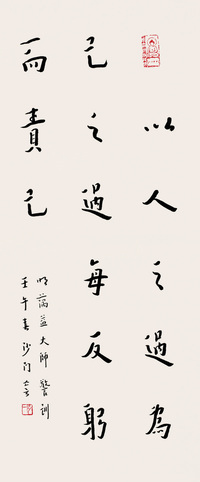 以人之過為
己之過每反躬
而責己
明蕅益大師警訓
壬午春沙門一音